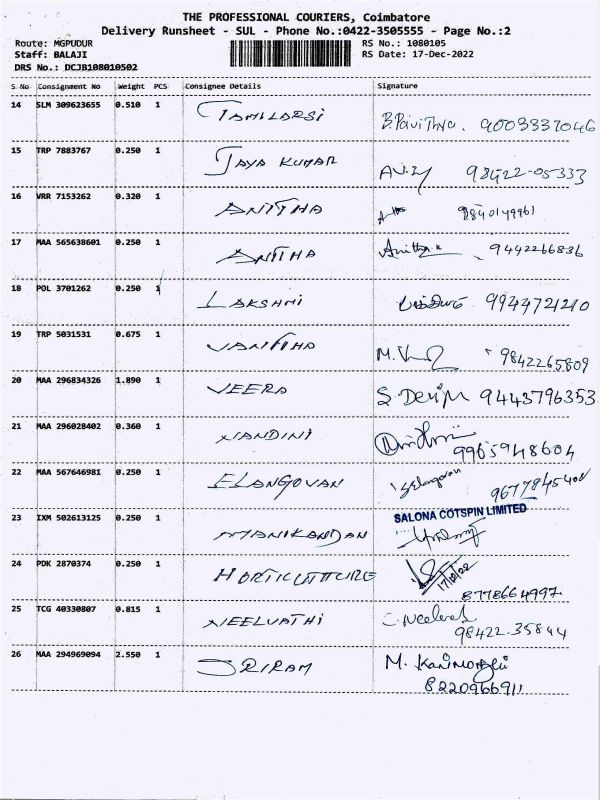 THE PROFESSIONAL COURIERS, Coimbatore
Delivery Runsheet - SUL - Phone No.:0422-3505555 - Page No.:2
Route: MGPUDUR RS No.: 1080105
Staff: BALAJI RS Date: 17-Dec-2022
DRS No.: DCJB108010502
S No Consignment No Weight PCS Consignee Details Signature
14 SLM 309623655 0.510 1 TAMILARSI B.Pavithra. 9003337046
15 TRP 7883767 0.250 1 JAYA KUMAR 98422-05333
16 VRR 7153262 0.320 1 ANITHA 9840149961
17 MAA 565638601 0.250 1 ANITHA Anitha 9442266836
18 POL 3701262 0.250 1 LAKSHMI 9944721210
19 TRP 5031531 0.675 1 VANITHA 9842265809
20 MAA 296834326 1.890 1 VEERA S. Devi M 9443796353
21 MAA 296028402 0.360 1 NANDINI 9965948604
22 MAA 567646981 0.250 1 ELANGOVAN Elangovan
23 IXM 502613125 0.250 1 MANIKANDAN SALONA COTSPIN LIMITED
24 PDK 2870374 0.250 1 HORTICULTURE 17/12/22
8778664997
25 TCG 40330807 0.815 1 NEELVATHI
98422-35844
26 MAA 294969094 2.550 1 SRIRAM M. Kanimozhi
8220966911